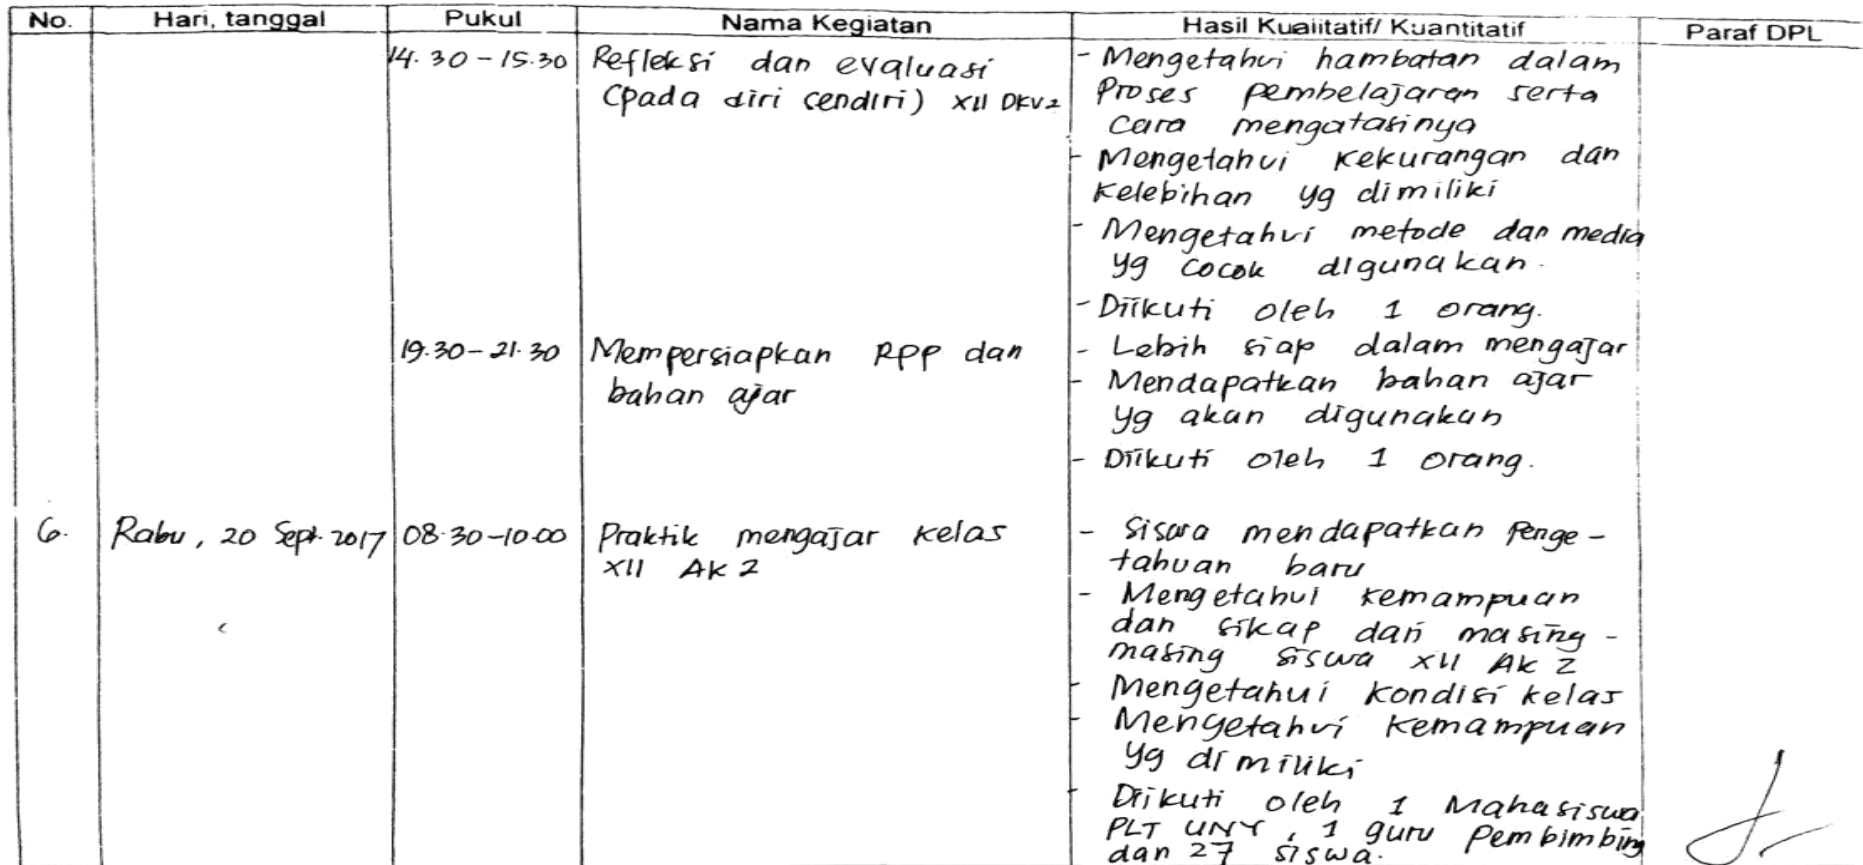 No. Hari, tanggal Pukul Nama Kegiatan Hasil Kualitatif/ Kuantitatif Paraf DPL
14.30 - 15.30 Refleksi dan evaluasi - Mengetahui hambatan dalam
(pada diri sendiri) XII DKV2 proses pembelajaran serta
cara mengatasinya
- Mengetahui kekurangan dan
kelebihan yg dimiliki
- Mengetahui metode dan media
yg cocok digunakan.
- Diikuti oleh 1 orang.
19.30 - 21.30 Mempersiapkan RPP dan - Lebih siap dalam mengajar
bahan ajar - Mendapatkan bahan ajar
yg akan digunakan
- Diikuti oleh 1 orang.
6. Rabu, 20 Sept. 2017 08.30-10.00 Praktik mengajar kelas - Siswa mendapatkan Penge-
XII AK 2 tahuan baru
- Mengetahui kemampuan
dan sikap dari masing-
masing siswa XII AK 2
- Mengetahui kondisi kelas
- Mengetahui kemampuan
yg dimiliki
- Diikuti oleh 1 Mahasiswa
PLT UNY, 1 guru Pembimbing
dan 27 siswa.